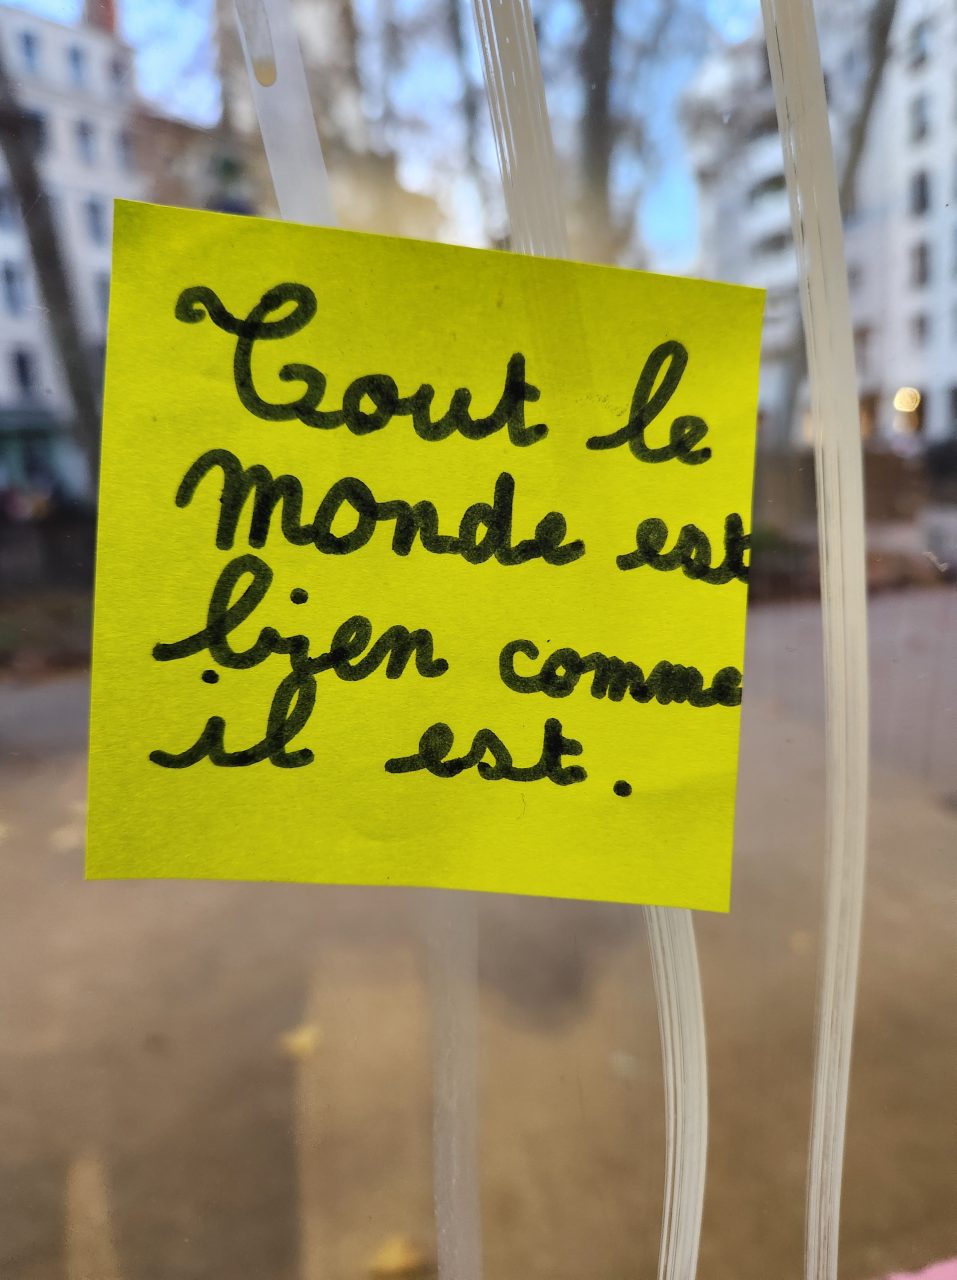 Tout le
monde est
bien comme
il est.